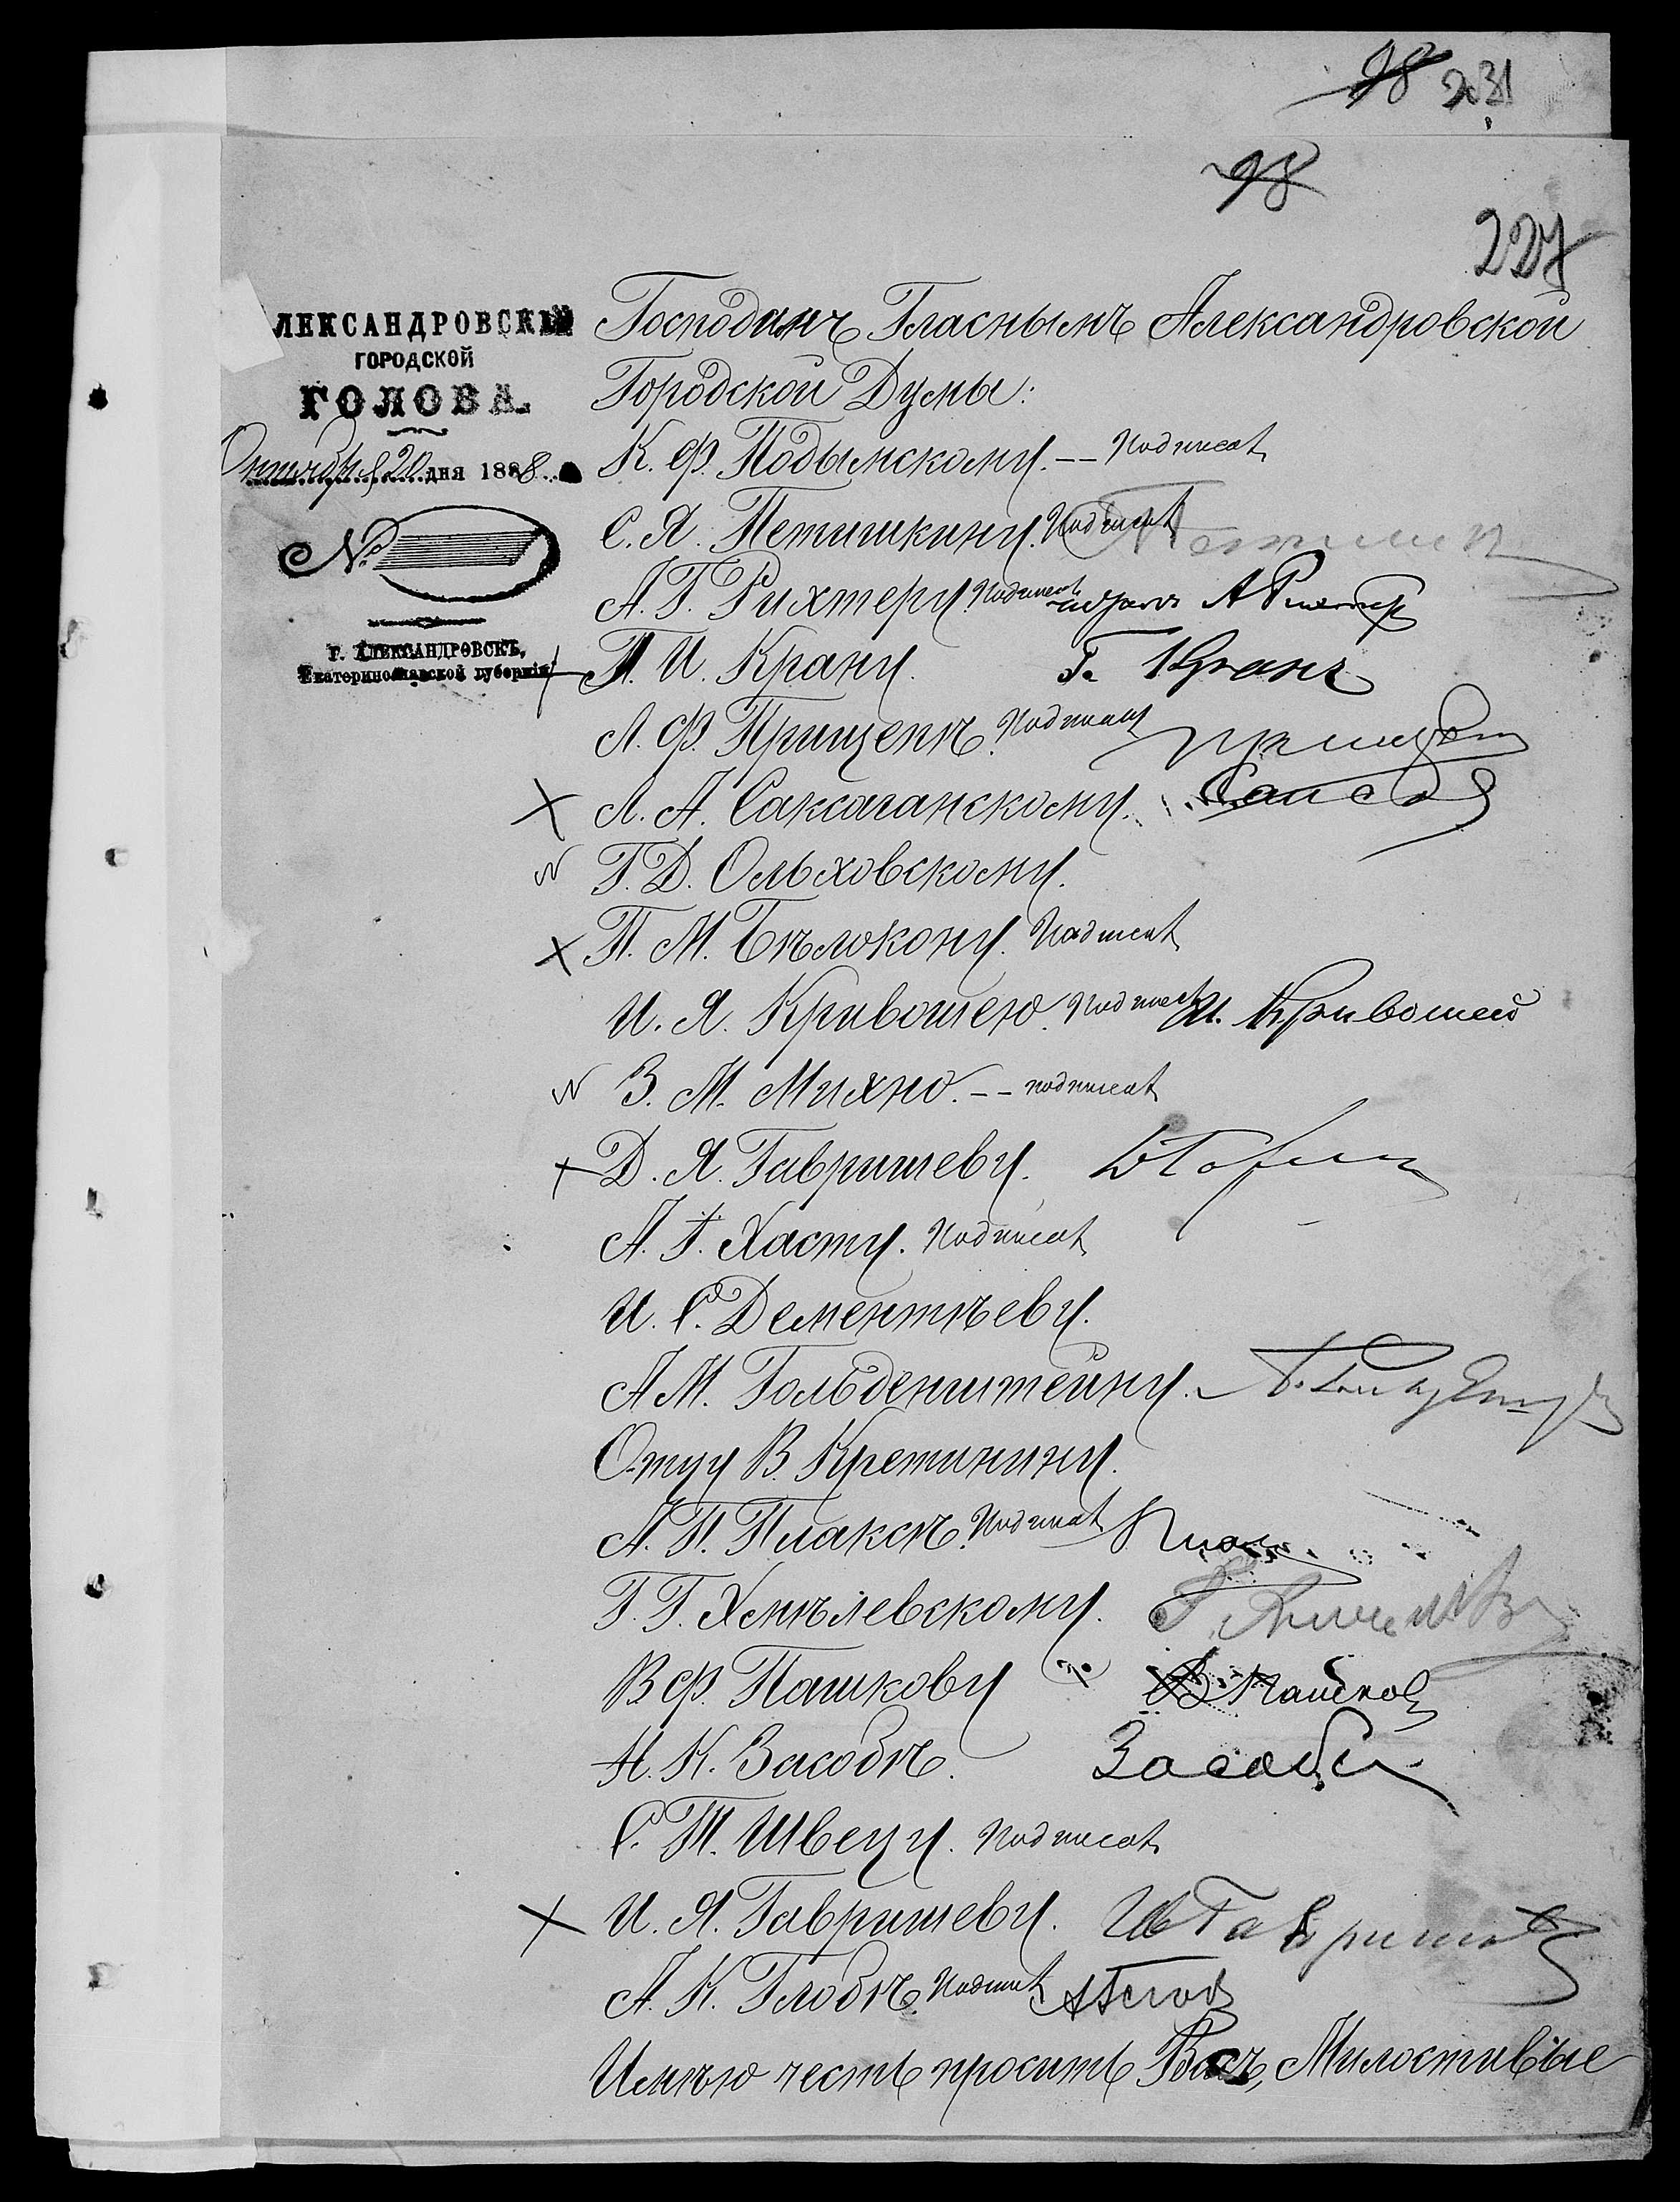 98 231
98
227
ЛЕКСАНДРОВСКІЙ
ГОРОДСКОЙ
ГОЛОВА
Октября 20 дня 1888
№
Г. АЛЕКСАНДРОВСКЪ,
Екатеринославской губерніи
Господамъ Гласнымъ Александровской
Городской Думы:
К. Ф. Подымскому. -- подписат
С. Я. Петишкину. Подписат
А. Г. Рихтеру. Подписат А Рихтер
П. И. Крану. Г. Кранъ
А. Ф. Прищепѣ. Подписат
А. А. Саксаганскому.
Г. Д. Ольховскому.
П. М. Бѣлокону. Подписат
И. Я. Кривошею. Подписат И. Кривошей
З. М. Михно. -- подписат
Д. Я. Гавришеву.
А. Г. Хасту. Подписат
И. С. Дементѣеву.
А М. Гольденштейну.
Отцу В. Кретинину.
А. П. Плаксѣ. Подписат
Г. Г. Хмѣлевскому.
В Ф. Пашкову В Пашков
Н. К. Засобѣ. Засоба
С. Т. Швецу. Подписат
И. Я. Гавришеву. Ив Гавришев
А. К. Глобѣ. Подписат АГлоб
Имѣю честь просить Васъ, Милостивые